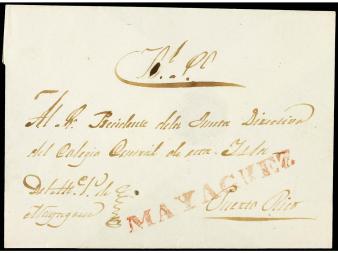 Rl. Sl.
Al Sr. Presidente de la Junta Directiva
del Colegio Central de esta Isla
Del Alce. 1o. de
Mayaguez
MAYAGUEZ
Puerto Rico